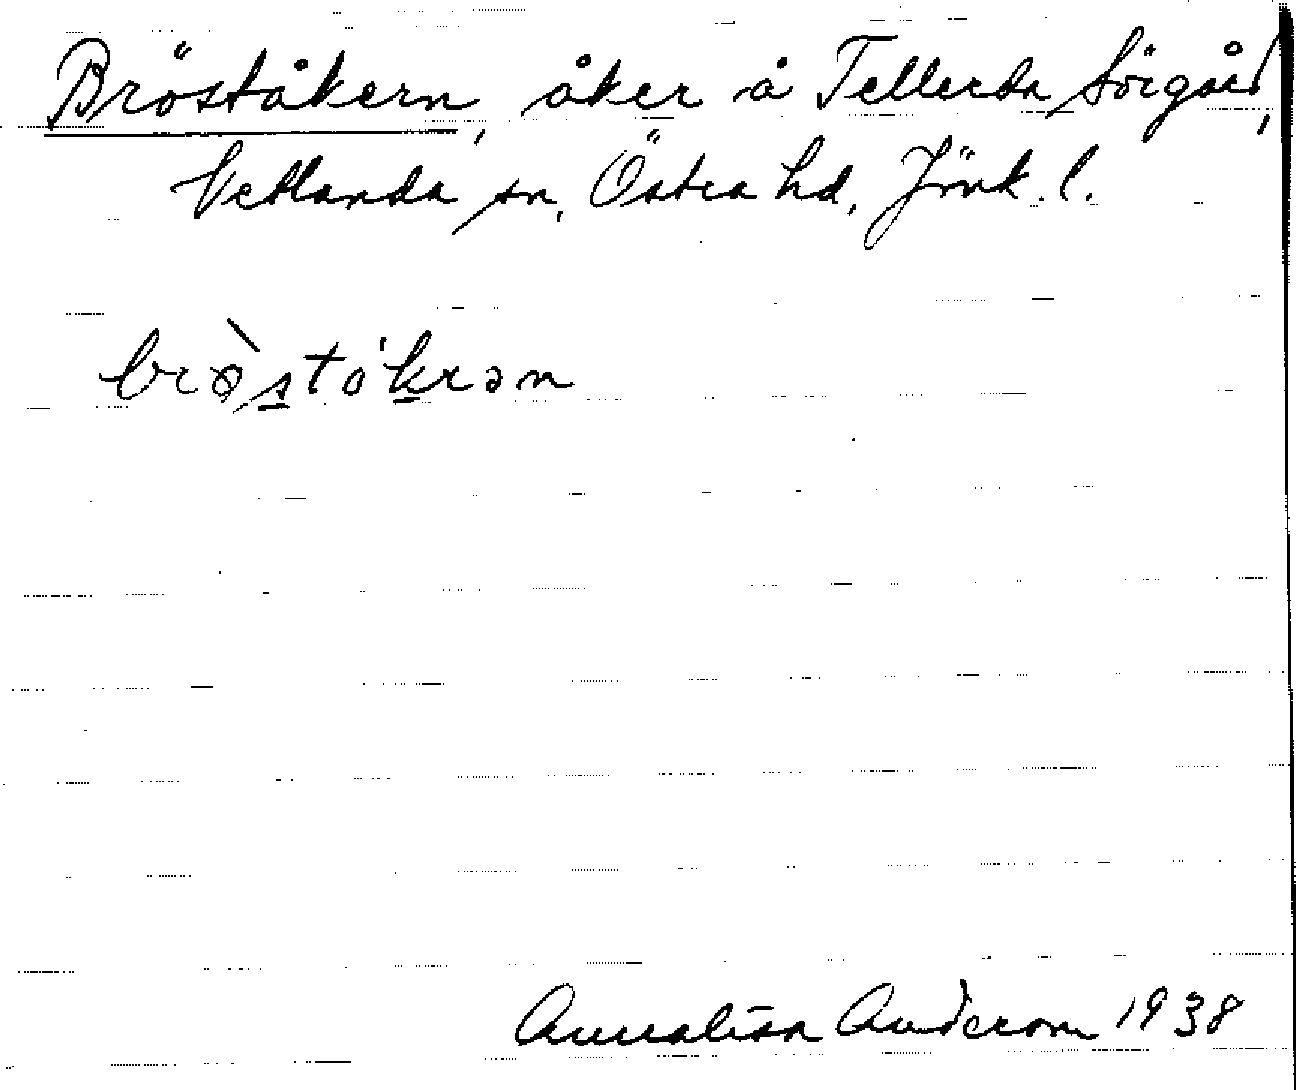 Bröståkern, åker å Tellerda Sörgård,
Vetlanda sn, Östra hd, Jönk. l.
brø̀stǻkrən
Annalisa Anderson 1938